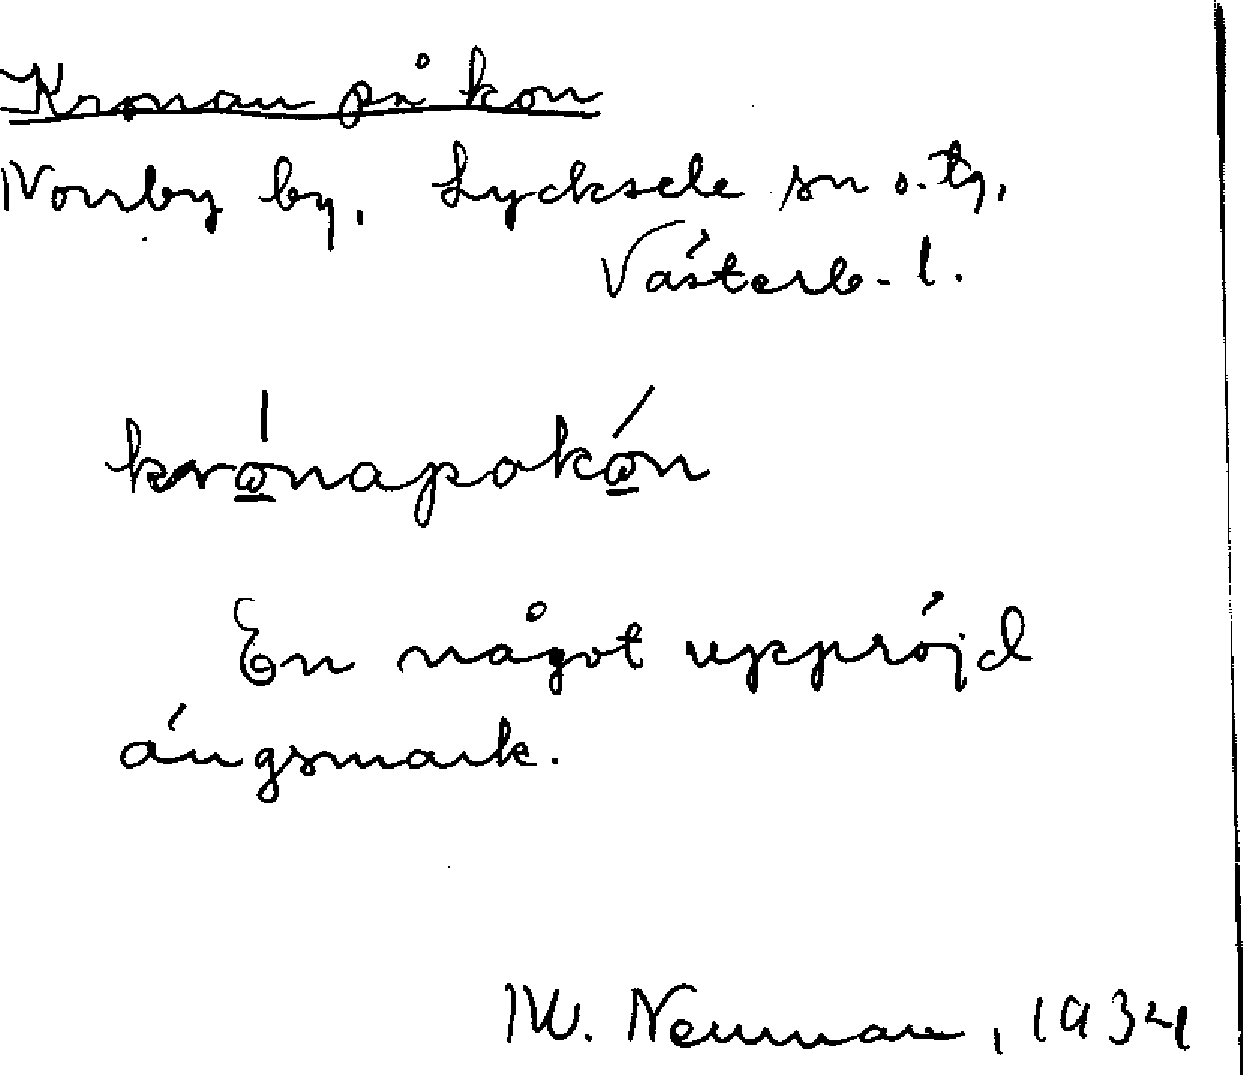 Kronan på kon
Norrby by, Lycksele sn o. tg,
Västerb. l.
krónapokón
En något uppröjd
ängsmark.
W. Neuman, 1934